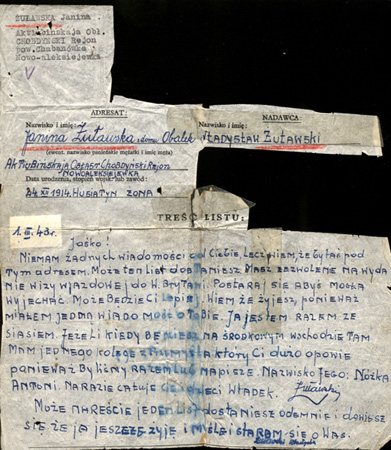 ŻUŁAWSKA Janina
Aktiubinskaja Obł.
CHOBDYŃSKI Rejon
pow. Chabanówka
Nowo-Aleksiejewka
ADRESAT:
NADAWCA:
Nazwisko i imię:
Nazwisko i imię:
Janina Żuławska z domu Obalek
Władysław Żuławski
(ewent. nazwisko panieńskie mężatki i imię męża)
AKTIUBINSKAJA OBŁAST CHOBDYŃSKI REJON
NOWOALEKSIEJEWKA
Data urodzenia, stopień wojsk. lub zawód:
24 XI 1914. HUSIATYN ŻONA
TREŚĆ LISTU:
1. III. 43 r.
Jaśko!
NIEMAM ŻADNYCH WIADOMOŚCI OD CIEBIE, LECZ WIEM, ŻE BYŁAŚ POD
TYM ADRESEM. MOŻE TEN LIST DOSTANIESZ MASZ ZEZWOLENIE NA WYDA
NIE WIZY WJAZDOWEJ DO W. BRYTANI. POSTARAJ SIĘ ABYŚ MOGŁA
WYJECHAĆ. MOŻE BĘDZIE CI LEPIEJ. WIEM ŻE ŻYJESZ, PONIEWAŻ
MIAŁEM JEDNĄ WIADOMOŚĆ O TOBIE. JA JESTEM RAZEM ZE
STASIEM. JEŻELI KIEDY BĘDZIESZ NA ŚRODKOWYM WSCHODZIE TAM
MAM JEDNEGO KOLEGĘ Z PRZEMYŚLA KTÓRY CI DUŻO OPOWIE
PONIEWAŻ BYLIŚMY RAZEM LUB NAPISZE. NAZWISKO JEGO: NÓŻKA
ANTONI. NARAZIE CAŁUJĘ CIĘ I DZIECI WŁADEK.
Żuławski
MOŻE NARESZCIE JEDEN LIST DOSTANIESZ ODEMNIE I DOWIESZ
SIĘ ŻE JA JESZCZE ŻYJĘ I MYŚLĘ I STARAM SIĘ O WAS.